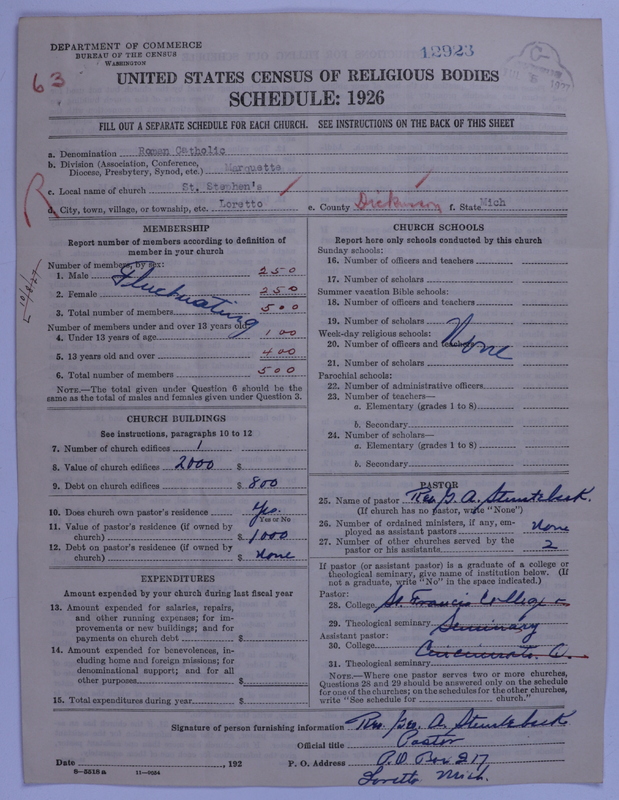 DEPARTMENT OF COMMERCE
BUREAU OF THE CENSUS
WASHINGTON
12923
63
UNITED STATES CENSUS OF RELIGIOUS BODIES
SCHEDULE: 1926
FILL OUT A SEPARATE SCHEDULE FOR EACH CHURCH. SEE INSTRUCTIONS ON THE BACK OF THIS SHEET
a. Denomination Roman Catholic
b. Division (Association, Conference, Diocese, Presbytery, Synod, etc.) Marquette
c. Local name of church St. Stephen's
d. City, town, village, or township, etc. Loretto e. County Dickinson f. State Mich
MEMBERSHIP
Report number of members according to definition of
member in your church
Number of members, by sex:
1. Male 250
2. Female 250
Fluctuating
3. Total number of members 500
Number of members under and over 13 years old:
4. Under 13 years of age 100
5. 13 years old and over 400
6. Total number of members 500
NOTE.—The total given under Question 6 should be the
same as the total of males and females given under Question 3.
CHURCH BUILDINGS
See instructions, paragraphs 10 to 12
7. Number of church edifices 1
8. Value of church edifices 2000 $
9. Debt on church edifices $ 800
10. Does church own pastor's residence Yes.
Yes or No
11. Value of pastor's residence (if owned by
church) $ 1000
12. Debt on pastor's residence (if owned by
church) $ None
EXPENDITURES
Amount expended by your church during last fiscal year
13. Amount expended for salaries, repairs,
and other running expenses; for im-
provements or new buildings; and for
payments on church debt $
14. Amount expended for benevolences, in-
cluding home and foreign missions; for
denominational support; and for all
other purposes $
15. Total expenditures during year $
CHURCH SCHOOLS
Report here only schools conducted by this church
Sunday schools:
16. Number of officers and teachers
17. Number of scholars
Summer vacation Bible schools:
18. Number of officers and teachers
19. Number of scholars
Week-day religious schools:
20. Number of officers and teachers
None
21. Number of scholars
Parochial schools:
22. Number of administrative officers
23. Number of teachers—
a. Elementary (grades 1 to 8)
b. Secondary
24. Number of scholars—
a. Elementary (grades 1 to 8)
b. Secondary
PASTOR
25. Name of pastor Rev. G. A. Stuntebeck.
(If church has no pastor, write "None")
26. Number of ordained ministers, if any, em-
ployed as assistant pastors None
27. Number of other churches served by the
pastor or his assistants 2
If pastor (or assistant pastor) is a graduate of a college or
theological seminary, give name of institution below. (If
not a graduate, write "No" in the space indicated.)
Pastor:
28. College St. Francis College
29. Theological seminary Seminary
Assistant pastor:
30. College Cincinnati O.
31. Theological seminary
NOTE.—Where one pastor serves two or more churches,
Questions 28 and 29 should be answered only on the schedule
for one of the churches; on the schedules for the other churches,
write "See schedule for church."
Signature of person furnishing information Rev. Geo. A. Stuntebeck
Official title Pastor
Date , 192 P. O. Address P.O. Box 217
8—5518a 11—9054 Loretto Mich.